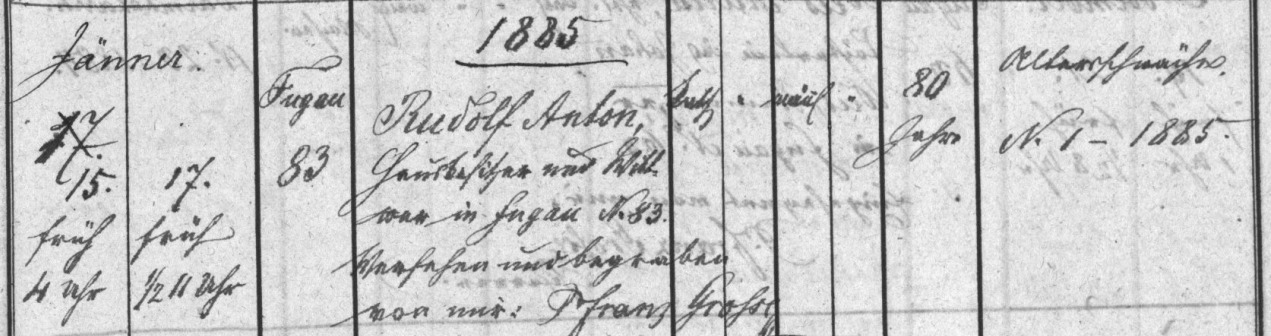 1885
Jänner.
17.
15.
früh
4 Uhr
17.
früh
1/2 11 Uhr
Fugau
83
Rudolf Anton,
Hausbesitzer und Witt-
wer in Fugau N. 83.
Versehen und begraben
von mir: P. Franz Grohse
Kath " männl "
80
Jahre
Altersschwäche.
N. 1 – 1885.